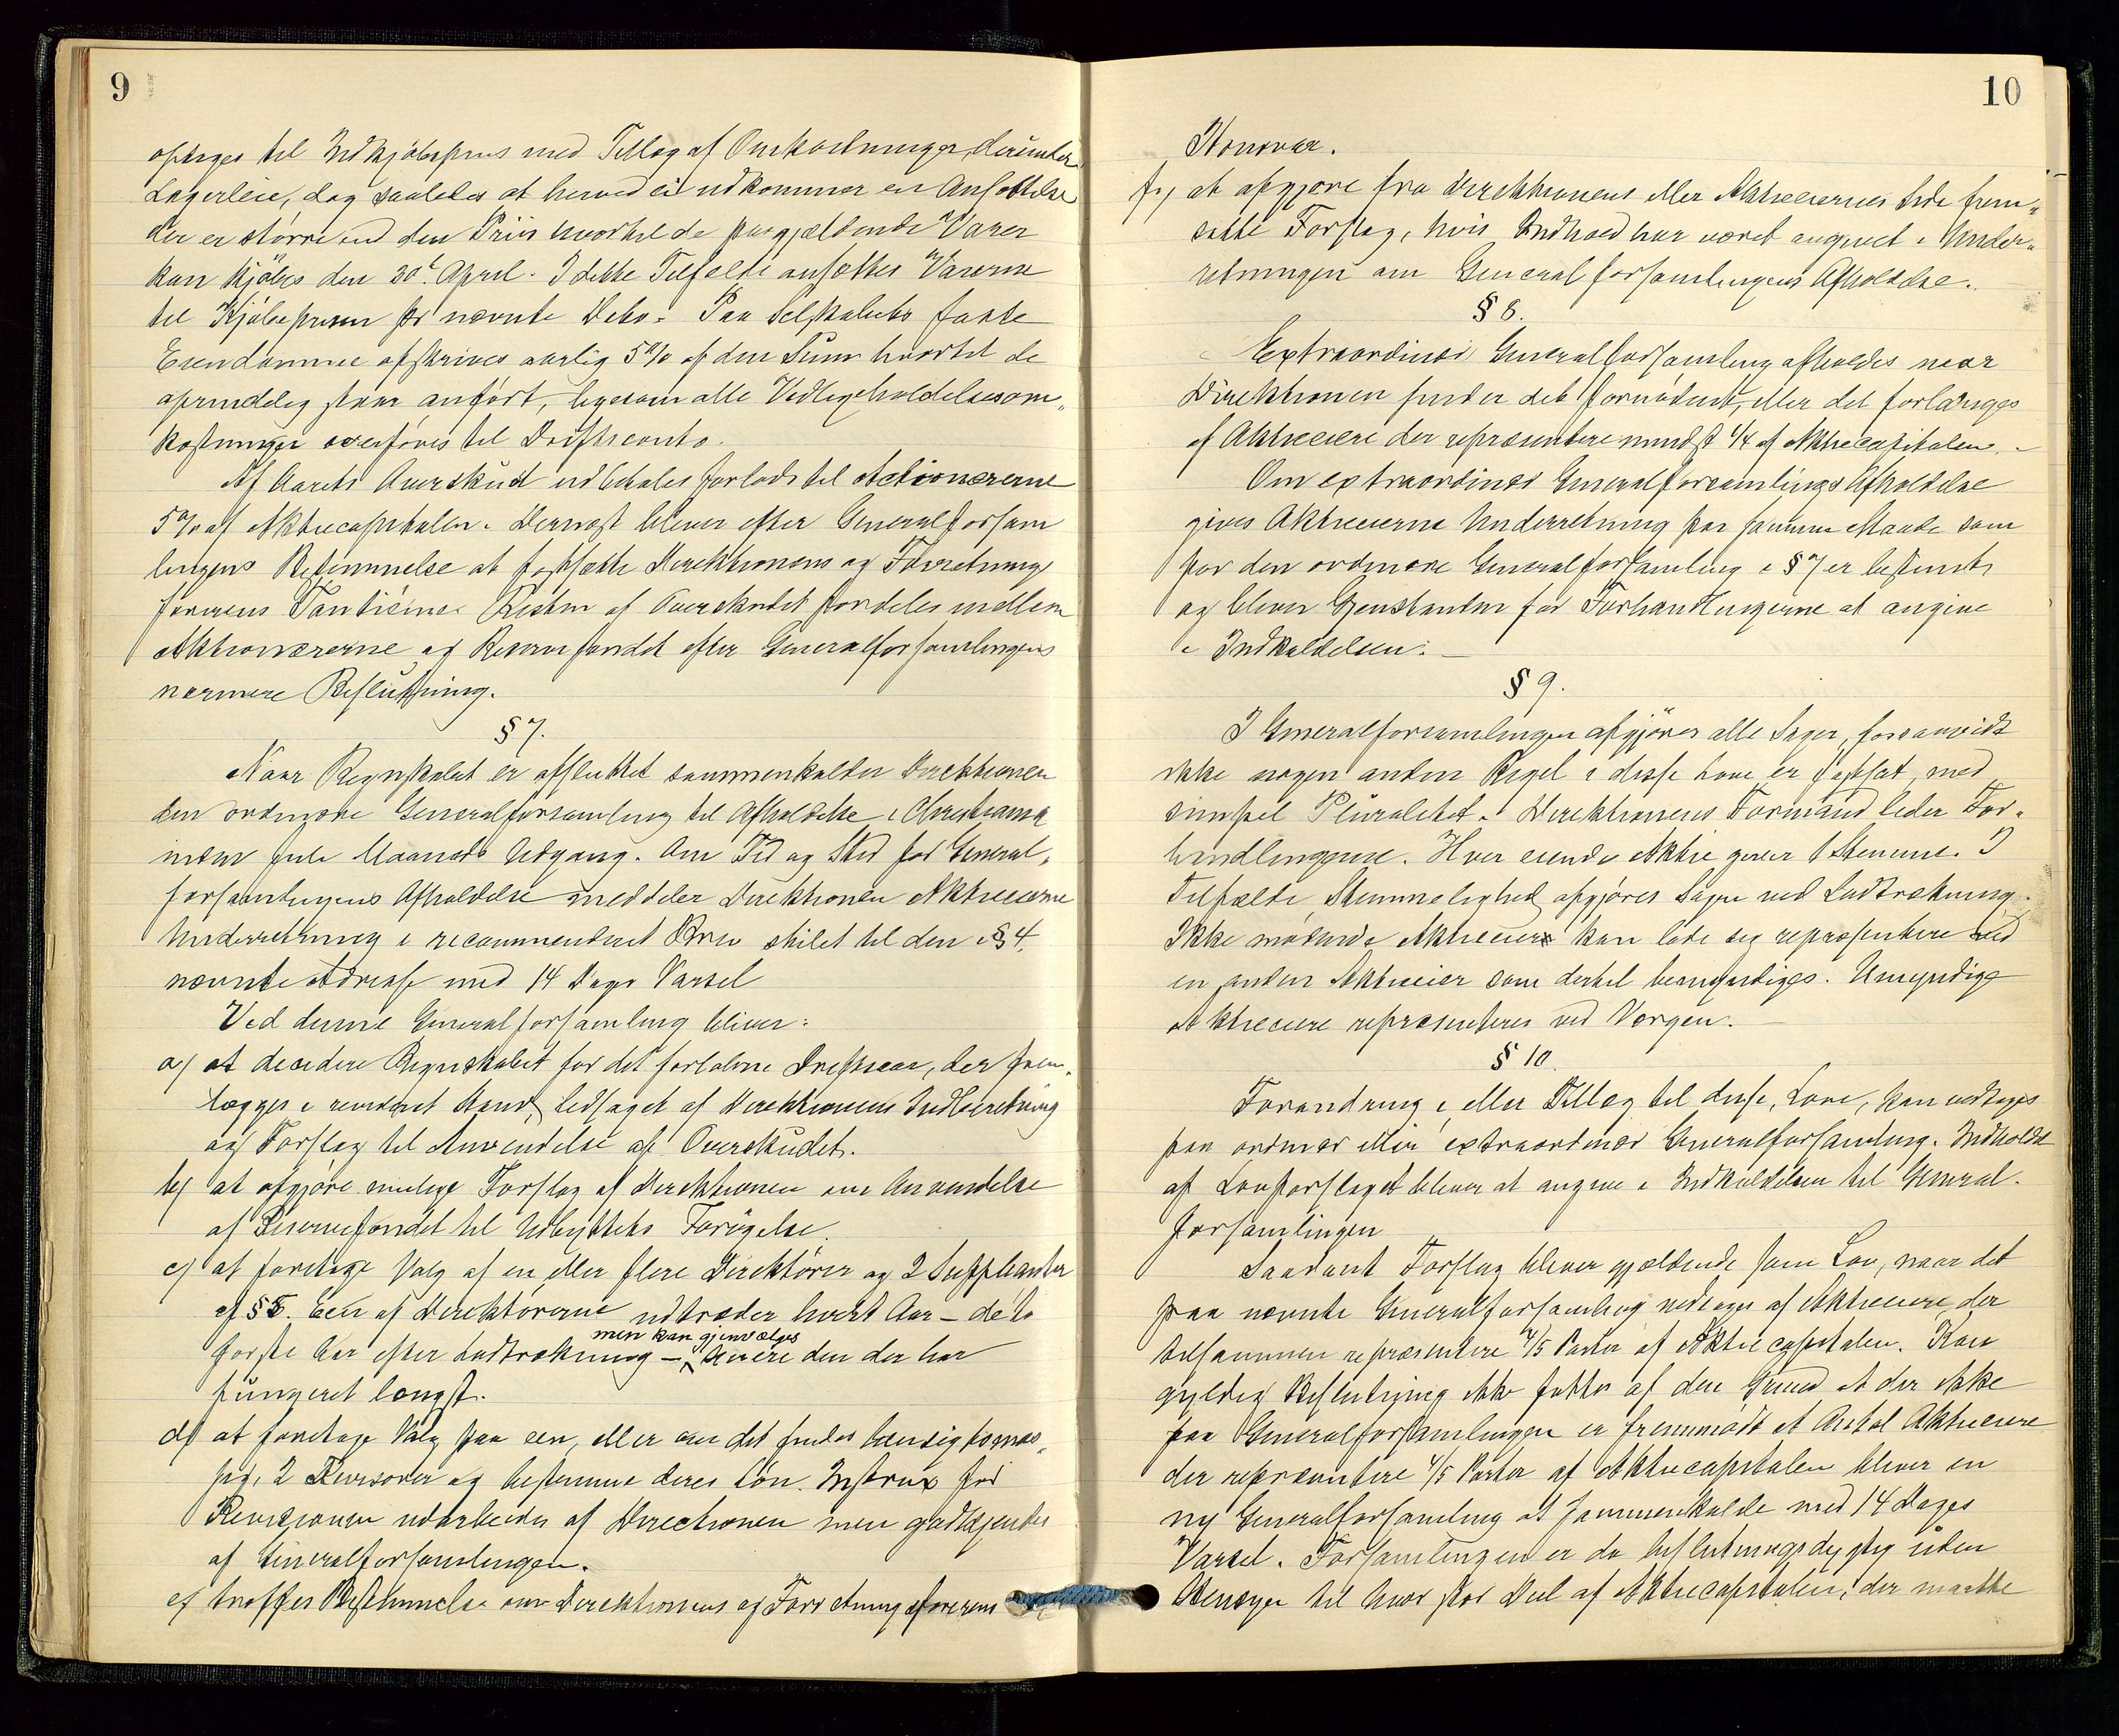 9
optages til Indkjøbspris med Tillæg af Omkostninger, derunder
Lagerleie, dog saaledes at herved ei udkommer en Ansættelse
der er større end den Priis hvortil de paagjældende Varer
kan kjøbes den 30t April. I dette Tilfælde ansættes Varerne
til Kjøbeprisen pr nævnte Dato. Paa Selskabets faste
Eiendomme afskrives aarlig 5% af den Sum hvortil de
oprindelig staar anført, ligesom alle Vedligeholdelsesom-
kostninger overføres til Driftsconto.
Af Aarets Overskud udbetales forlods til Actionærerne
5% af Aktiecapitalen. Dernæst bliver efter Generalforsam
lingens Bestemmelse at fastsætte Direktionens og Forretnings
førerens Tantième. Resten af Overskudet fordeles mellem
Aktionærerne og Reservefondet efter Generalforsamlingens
nærmere Beslutning.
§ 7.
Naar Regnskabet er afsluttet sammenkalder Direktionen
den ordinære Generalforsamling til Afholdelse i Christiania
inden Juli Maaneds Udgang. Om Tid og Sted for General-
forsamlingens Afholdelse meddeler Direktionen Aktieeierne
Underretning i recommenderet Brev stilet til den i § 4.
nævnte Adresse med 14 Dages Varsel
Ved denne Generalforsamling bliver:
a) at decidere Regnskabet for det forløbne Driftsaar, der frem-
lægges i revideret Stand, ledsaget af Direktionens Indberetning
og Forslag til Anvendelse af Overskudet.
b) at afgjøre mulige Forslag af Direktionen om Anvendelse
af Reservefondet til Udbyttets Forøgelse.
c) at foretage Valg af en eller flere Direktører og 2 Suppleanter
cf § 5. Een af Direktørerne udtræder hvert Aar – de to
men kan gjenvælges
første Aar efter Lodtrækning – senere den der har
fungeret længst.
d) at foretage Valg paa een, eller om det findes hensigtsmæs-
sigt, 2 Revisorer og bestemme deres Løn. Instrux for
Revisionen udarbeides af Directionen men godkjendes
af Generalforsamlingen.
e) træffes Bestemmelse om Direktionens og Forretningsførerens
10
Honorar.
f.) at afgjøre fra Direktionens eller Aktieeiernes Side frem-
satte Forslag, hvis Indhold har været angivet i Under-
retningen om Generalforsamlingens Afholdelse.
§ 8.
Extraordinær Generalforsamling afholdes naar
Direktionen finder det fornødent, eller det forlanges
af Aktieeiere der repræsentere mindst 1/4 af Aktiecapitalen. –
Om extraordinær Generalforsamlings Afholdelse
gives Aktieeierne Underretning paa samme Maade som
for den ordinære Generalforsamling i § 7 er bestemt,
og bliver Gjenstanden for Forhandlingerne at angive
i Indkaldelsen. –
§ 9.
I Generalforsamlingen afgjøres alle Sager, forsaavidt
ikke nogen anden Regel i disse Love er fastsat, med
simpel Pluralitet. Direktionens Formand leder For-
handlingerne. Hver eiende Aktie giver 1 Stemme. I
Tilfælde Stemmelighed afgjøres Sagen ved Lodtrækning.
Ikke mødende Aktieeier kan lade sig repræsentere ved
en anden Aktieeier som dertil bemyndiges. Umyndige
Aktieeiere repræsenteres ved Værgen. –
§ 10.
Forandring i, eller Tillæg til disse, Love, kan vedtages
paa ordinær eller extraordinær Generalforsamling. Indholdet
af Lovforslaget bliver at angive i Indkaldelsen til General-
forsamlingen
Saadant Forslag bliver gjældende som Lov, naar det
paa nævnte Generalforsamling vedtages af Aktieeiere, der
tilsammen repræsentere 4/5 Parter af Aktiecapitalen. Kan
gyldig Beslutning ikke fattes af den Grund at der ikke
paa Generalforsamlingen er fremmødt et Antal Aktieeiere
der repræsentere 4/5 Parter af Aktiecapitalen bliver en
ny Generalforsamling at sammenkalde med 14 Dages
Varsel. Forsamlingen er da beslutningsdygtig uden
Hensyn til hvor stor Deel af Aktiecapitalen, der maatte